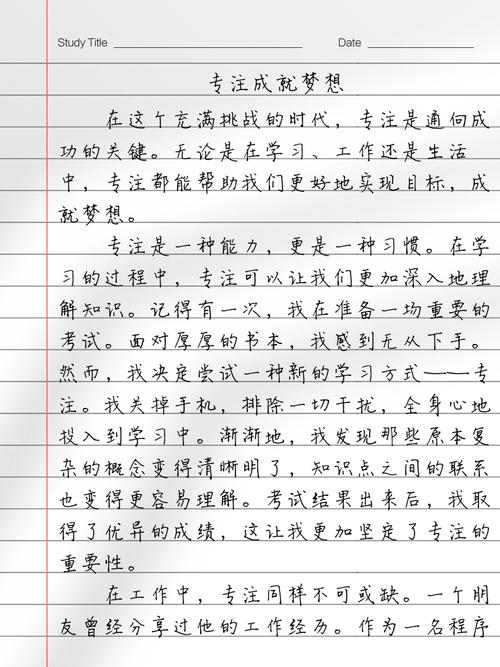 Study Title
Date
专注成就梦想
在这个充满挑战的时代，专注是通向成
功的关键。无论是在学习、工作还是生活
中，专注都能帮助我们更好地实现目标，成
就梦想。
专注是一种能力，更是一种习惯。在学
习的过程中，专注可以让我们更加深入地理
解知识。记得有一次，我在准备一场重要的
考试。面对厚厚的书本，我感到无从下手。
然而，我决定尝试一种新的学习方式——专
注。我关掉手机，排除一切干扰，全身心地
投入到学习中。渐渐地，我发现那些原本复
杂的概念变得清晰明了，知识点之间的联系
也变得更容易理解。考试结果出来后，我取
得了优异的成绩，这让我更加坚定了专注的
重要性。
在工作中，专注同样不可或缺。一个朋
友曾经分享过他的工作经历。作为一名程序